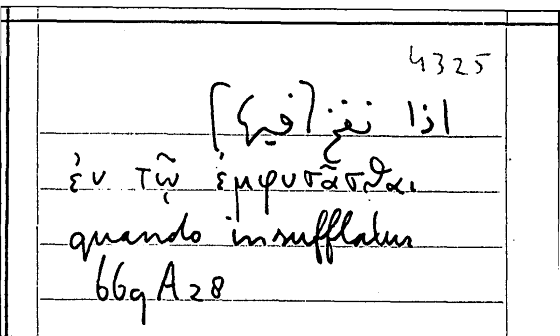 4325
اذا نفخ
ἐν τῷ ἐμφυσᾶσθαι
quando insufflatur
669 A 28